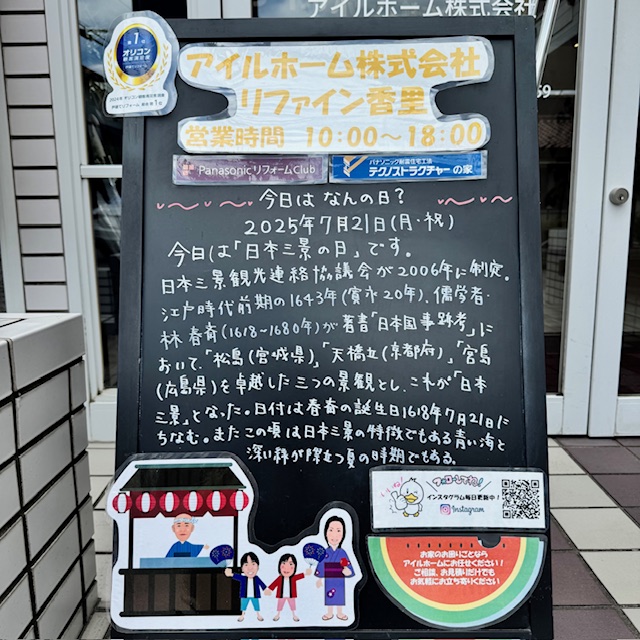 アイルホーム株式会社
第1位
オリコン
顧客満足度
アイルホーム株式会社
リファイン香里
営業時間 10:00〜18:00
PanasonicリフォームClub
パナソニック耐震住宅工法
テクノストラクチャーの家
今日は なんの日?
2025年7月21日(月・祝)
今日は「日本三景の日」です。
日本三景観光連絡協議会が2006年に制定。
江戸時代前期の1643年(寛永20年)、儒学者・
林 春斎(1618〜1680年)が著書「日本国事跡考」に
おいて、「松島(宮城県)」「天橋立(京都府)」「宮島
(広島県)を卓越した三つの景観とし、これが「日本
三景」となった。日付は春斎の誕生日1618年7月21日に
ちなむ。またこの頃は日本三景の特徴でもある青い海と
深い緑が際立つ夏の時期でもある。
フォローしてね!
インスタグラム毎日更新中!
Instagram
お家のお困りごとなら
アイルホームにお任せください!
ご相談、お見積りだけでも
お気軽にお立ち寄りください